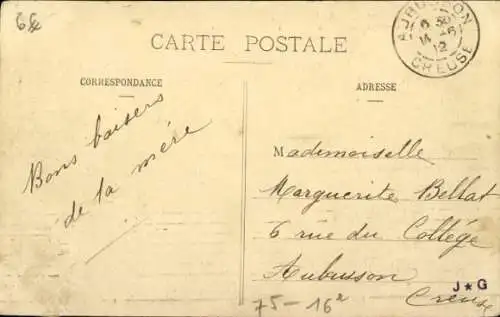 CARTE POSTALE
AUBUSSON
6 30
14 - 6
12
CREUSE
CORRESPONDANCE
ADRESSE
Bons baisers
de la mère
Mademoiselle
Marguerite Bellat
6 rue du Collége
Aubusson
Creuse
J★G
75 - 16ª